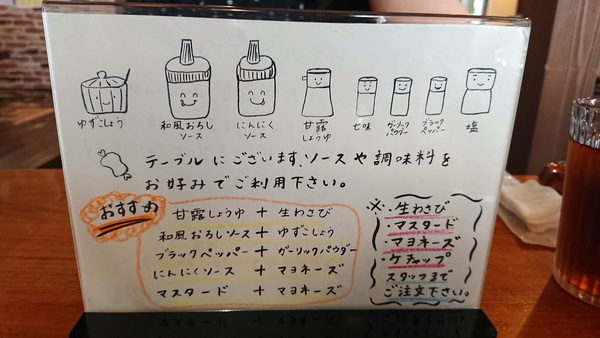 ゆずこしょう
和風おろし
ソース
にんにく
ソース
甘露
しょうゆ
七味
ガーリック
パウダー
ブラック
ペッパー
塩
テーブルにございます、ソースや調味料を
お好みでご利用下さい。
おすすめ
甘露しょうゆ + 生わさび
和風おろしソース + ゆずこしょう
ブラックペッパー + ガーリックパウダー
にんにくソース + マヨネーズ
マスタード + マヨネーズ
※・生わさび
・マスタード
・マヨネーズ
・ケチャップ
スタッフまで
ご注文下さい。